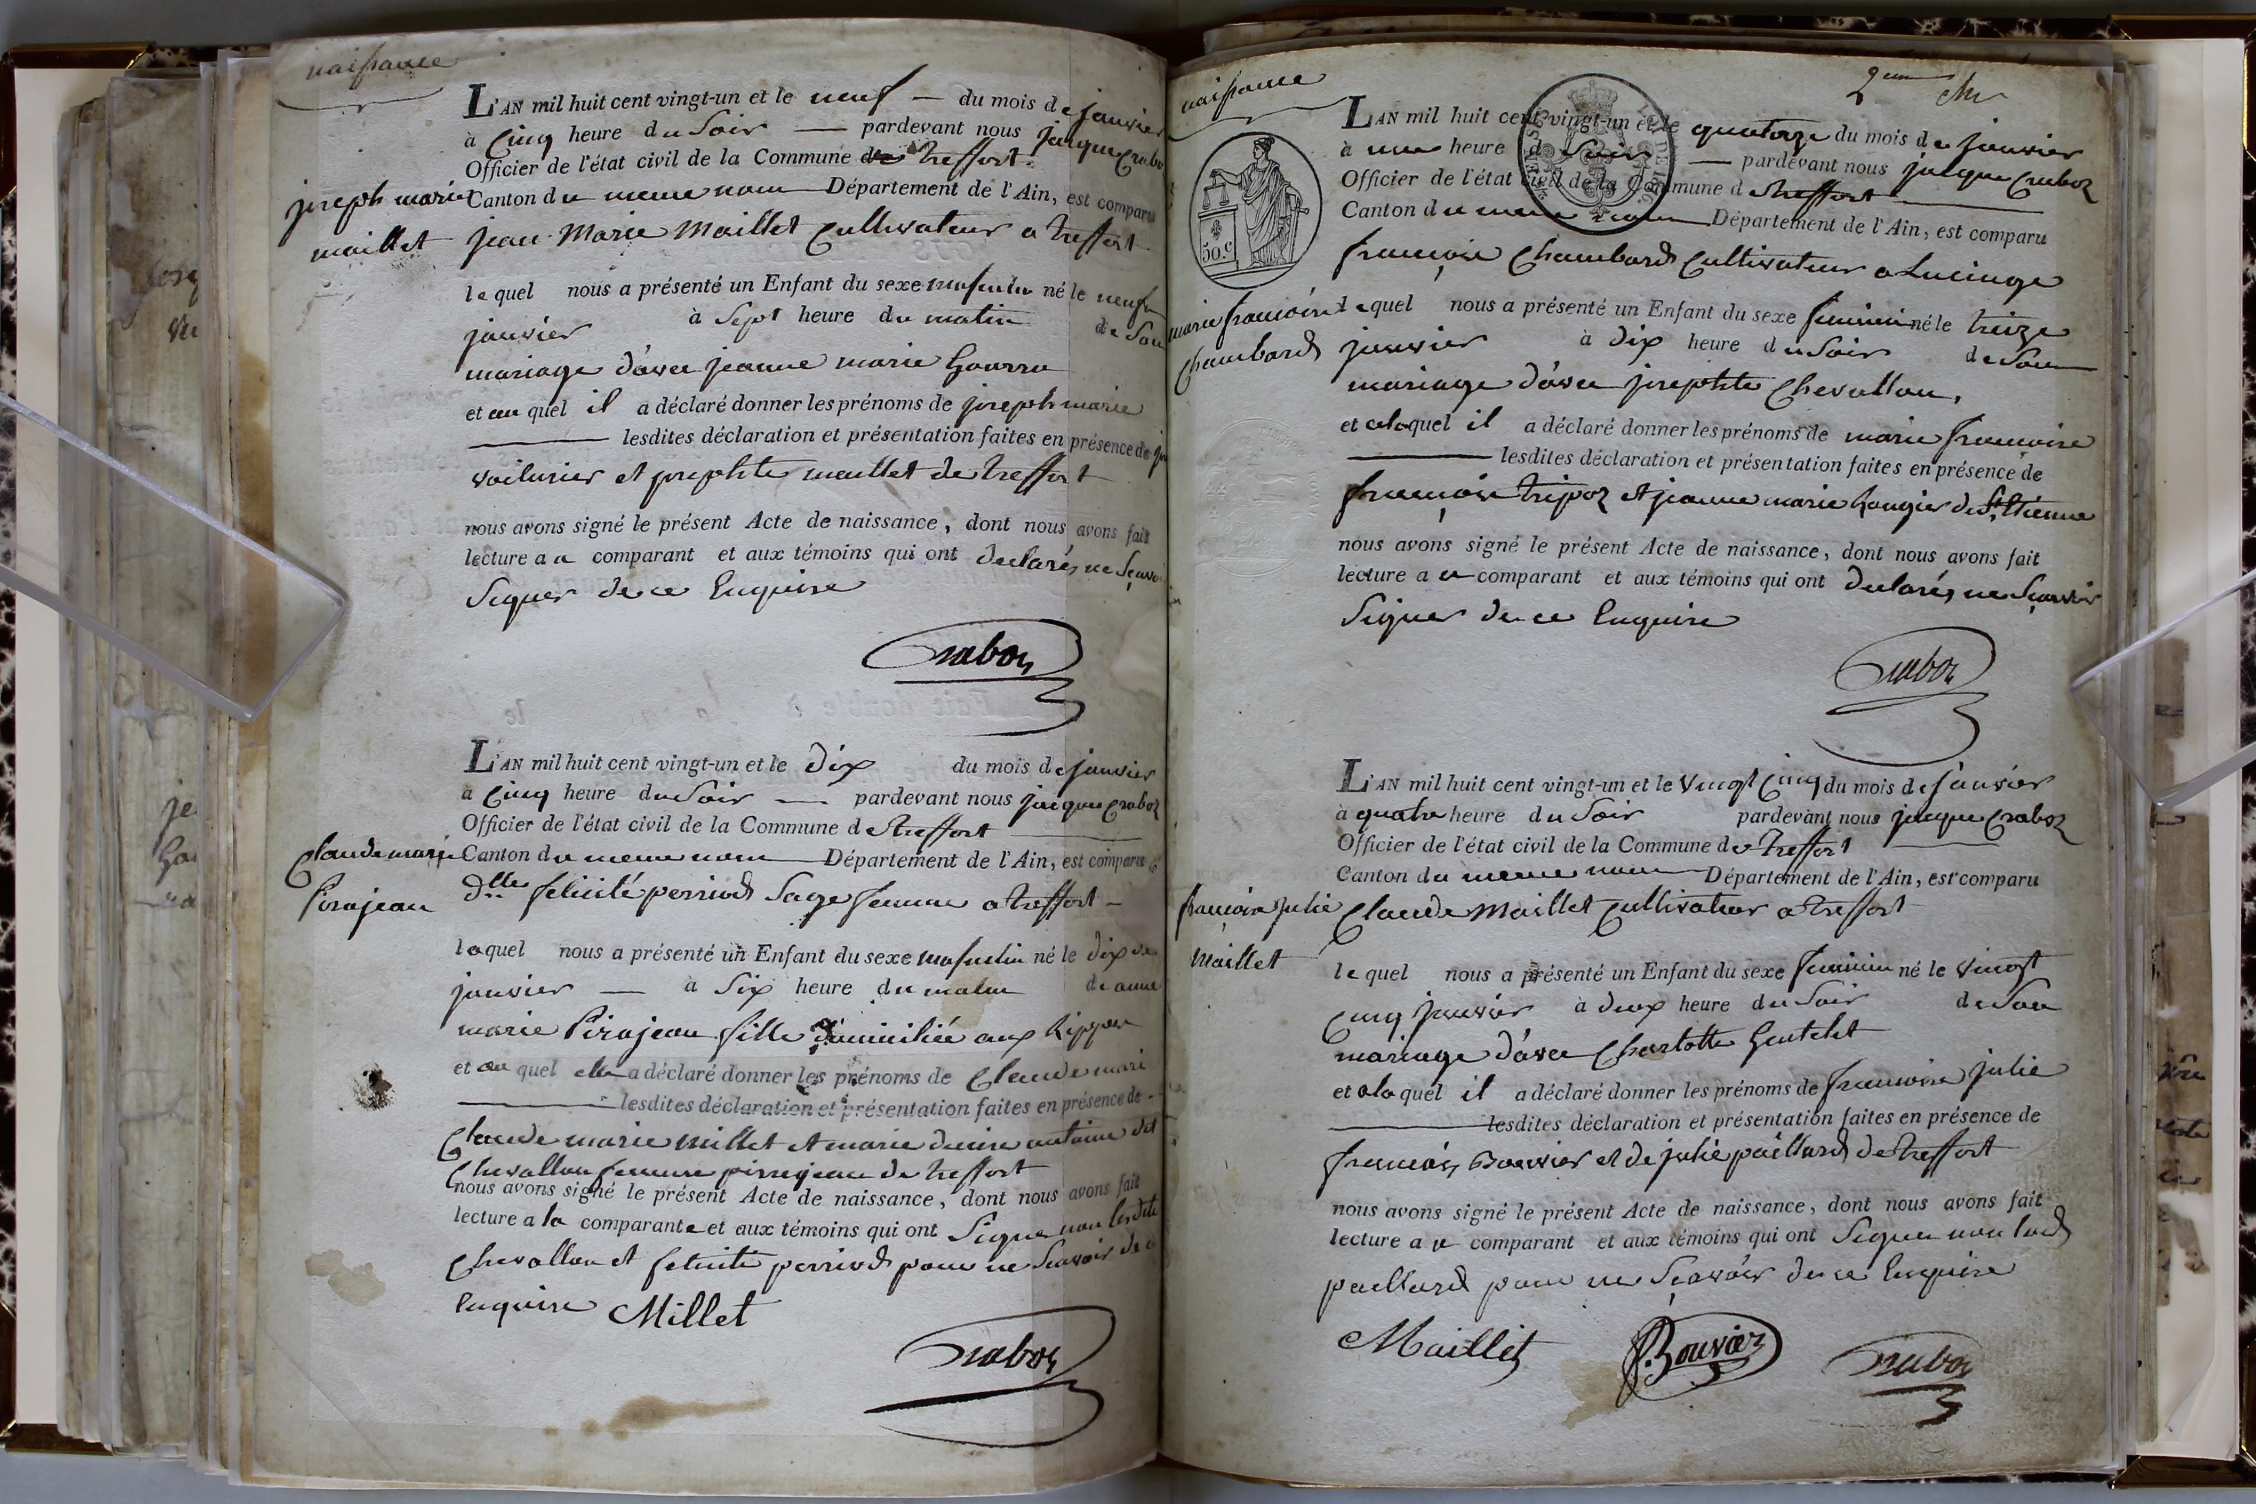 naissance
L'AN mil huit cent vingt-un et le neuf — du mois de janvier
à Cinq heure du Soir — pardevant nous jacque Crabo
Officier de l'état civil de la Commune de treffort
joseph marie
Canton du meme nom Département de l'Ain, est comparu
maillet
jean Marie Maillet Cultivateur a treffort
lequel nous a présenté un Enfant du sexe masculin né le neuf
janvier à Sept heure du matin de Son
mariage d'avec jeanne marie
et au quel il a déclaré donner les prénoms de joseph marie
lesdites déclaration et présentation faites en présence de
voiturier et josephte maillet de treffort
nous avons signé le présent Acte de naissance, dont nous avons fait
lecture a u comparant et aux témoins qui ont declarés ne Sçavoi
Signer de ce Enquise
Craboz
L'AN mil huit cent vingt-un et le dix du mois de janvier
à Cinq heure du Soir — pardevant nous jacque Craboz
Officier de l'état civil de la Commune de treffort
Claude marie
Canton du meme nom Département de l'Ain, est comparu
Pirajean
dlle felicité perriod Sage femme a treffort —
laquel nous a présenté un Enfant du sexe masculin né le dix de
janvier — à Six heure du matin de anne
marie Pirajean fille domiciliée aux Rippes
et au quel elle a déclaré donner les prénoms de Claude mari
lesdites déclaration et présentation faites en présence de
Claude marie millet et marie denise antoine dit
Chevallon femme pirrajean de treffort
nous avons signé le présent Acte de naissance, dont nous avons fait
lecture a la comparante et aux témoins qui ont Signe non lesdite
Chevallon et felicite perriod pour ne Scavoir de c
Enquise Millet
Craboz
naissance
2eme
L'AN mil huit cent vingt-un et le quatorze du mois de janvier
à une heure du Soir — pardevant nous jacque Craboz
Officier de l'état civil de la Commune de treffort
Canton du meme nom Département de l'Ain, est comparu
50.c
françois Chambard Cultivateur a Lucinge
marie françoise
lequel nous a présenté un Enfant du sexe feminin né le treize
Chambard
janvier à dix heure du Soir de Son
mariage d'avec josephte Chevallon,
et a laquel il a déclaré donner les prénoms de marie francoise
lesdites déclaration et présentation faites en présence de
françois tripoz et jeanne marie Rougier de St Etienne
nous avons signé le présent Acte de naissance, dont nous avons fait
lecture a u comparant et aux témoins qui ont declarés ne Sçavoir
Signer de ce Enquise
Craboz
L'AN mil huit cent vingt-un et le Vingt Cinq du mois de janvier
à quatre heure du Soir pardevant nous jacque Craboz
Officier de l'état civil de la Commune de treffort
Canton du meme nom Département de l'Ain, est comparu
françoise julie
Claude Maillet Cultivateur a treffort
maillet
lequel nous a présenté un Enfant du sexe feminin né le Vingt
Cinq janvier à deux heure du Soir de Son
mariage d'avec Charlotte
et a la quel il a déclaré donner les prénoms de francoise julie
lesdites déclaration et présentation faites en présence de
francois Bouvier et de julie paillard de treffort
nous avons signé le présent Acte de naissance, dont nous avons fait
lecture a u comparant et aux témoins qui ont Signer non lad
paillard pour ne Sçavoir de ce Enquise
Maillet Bouvier Craboz